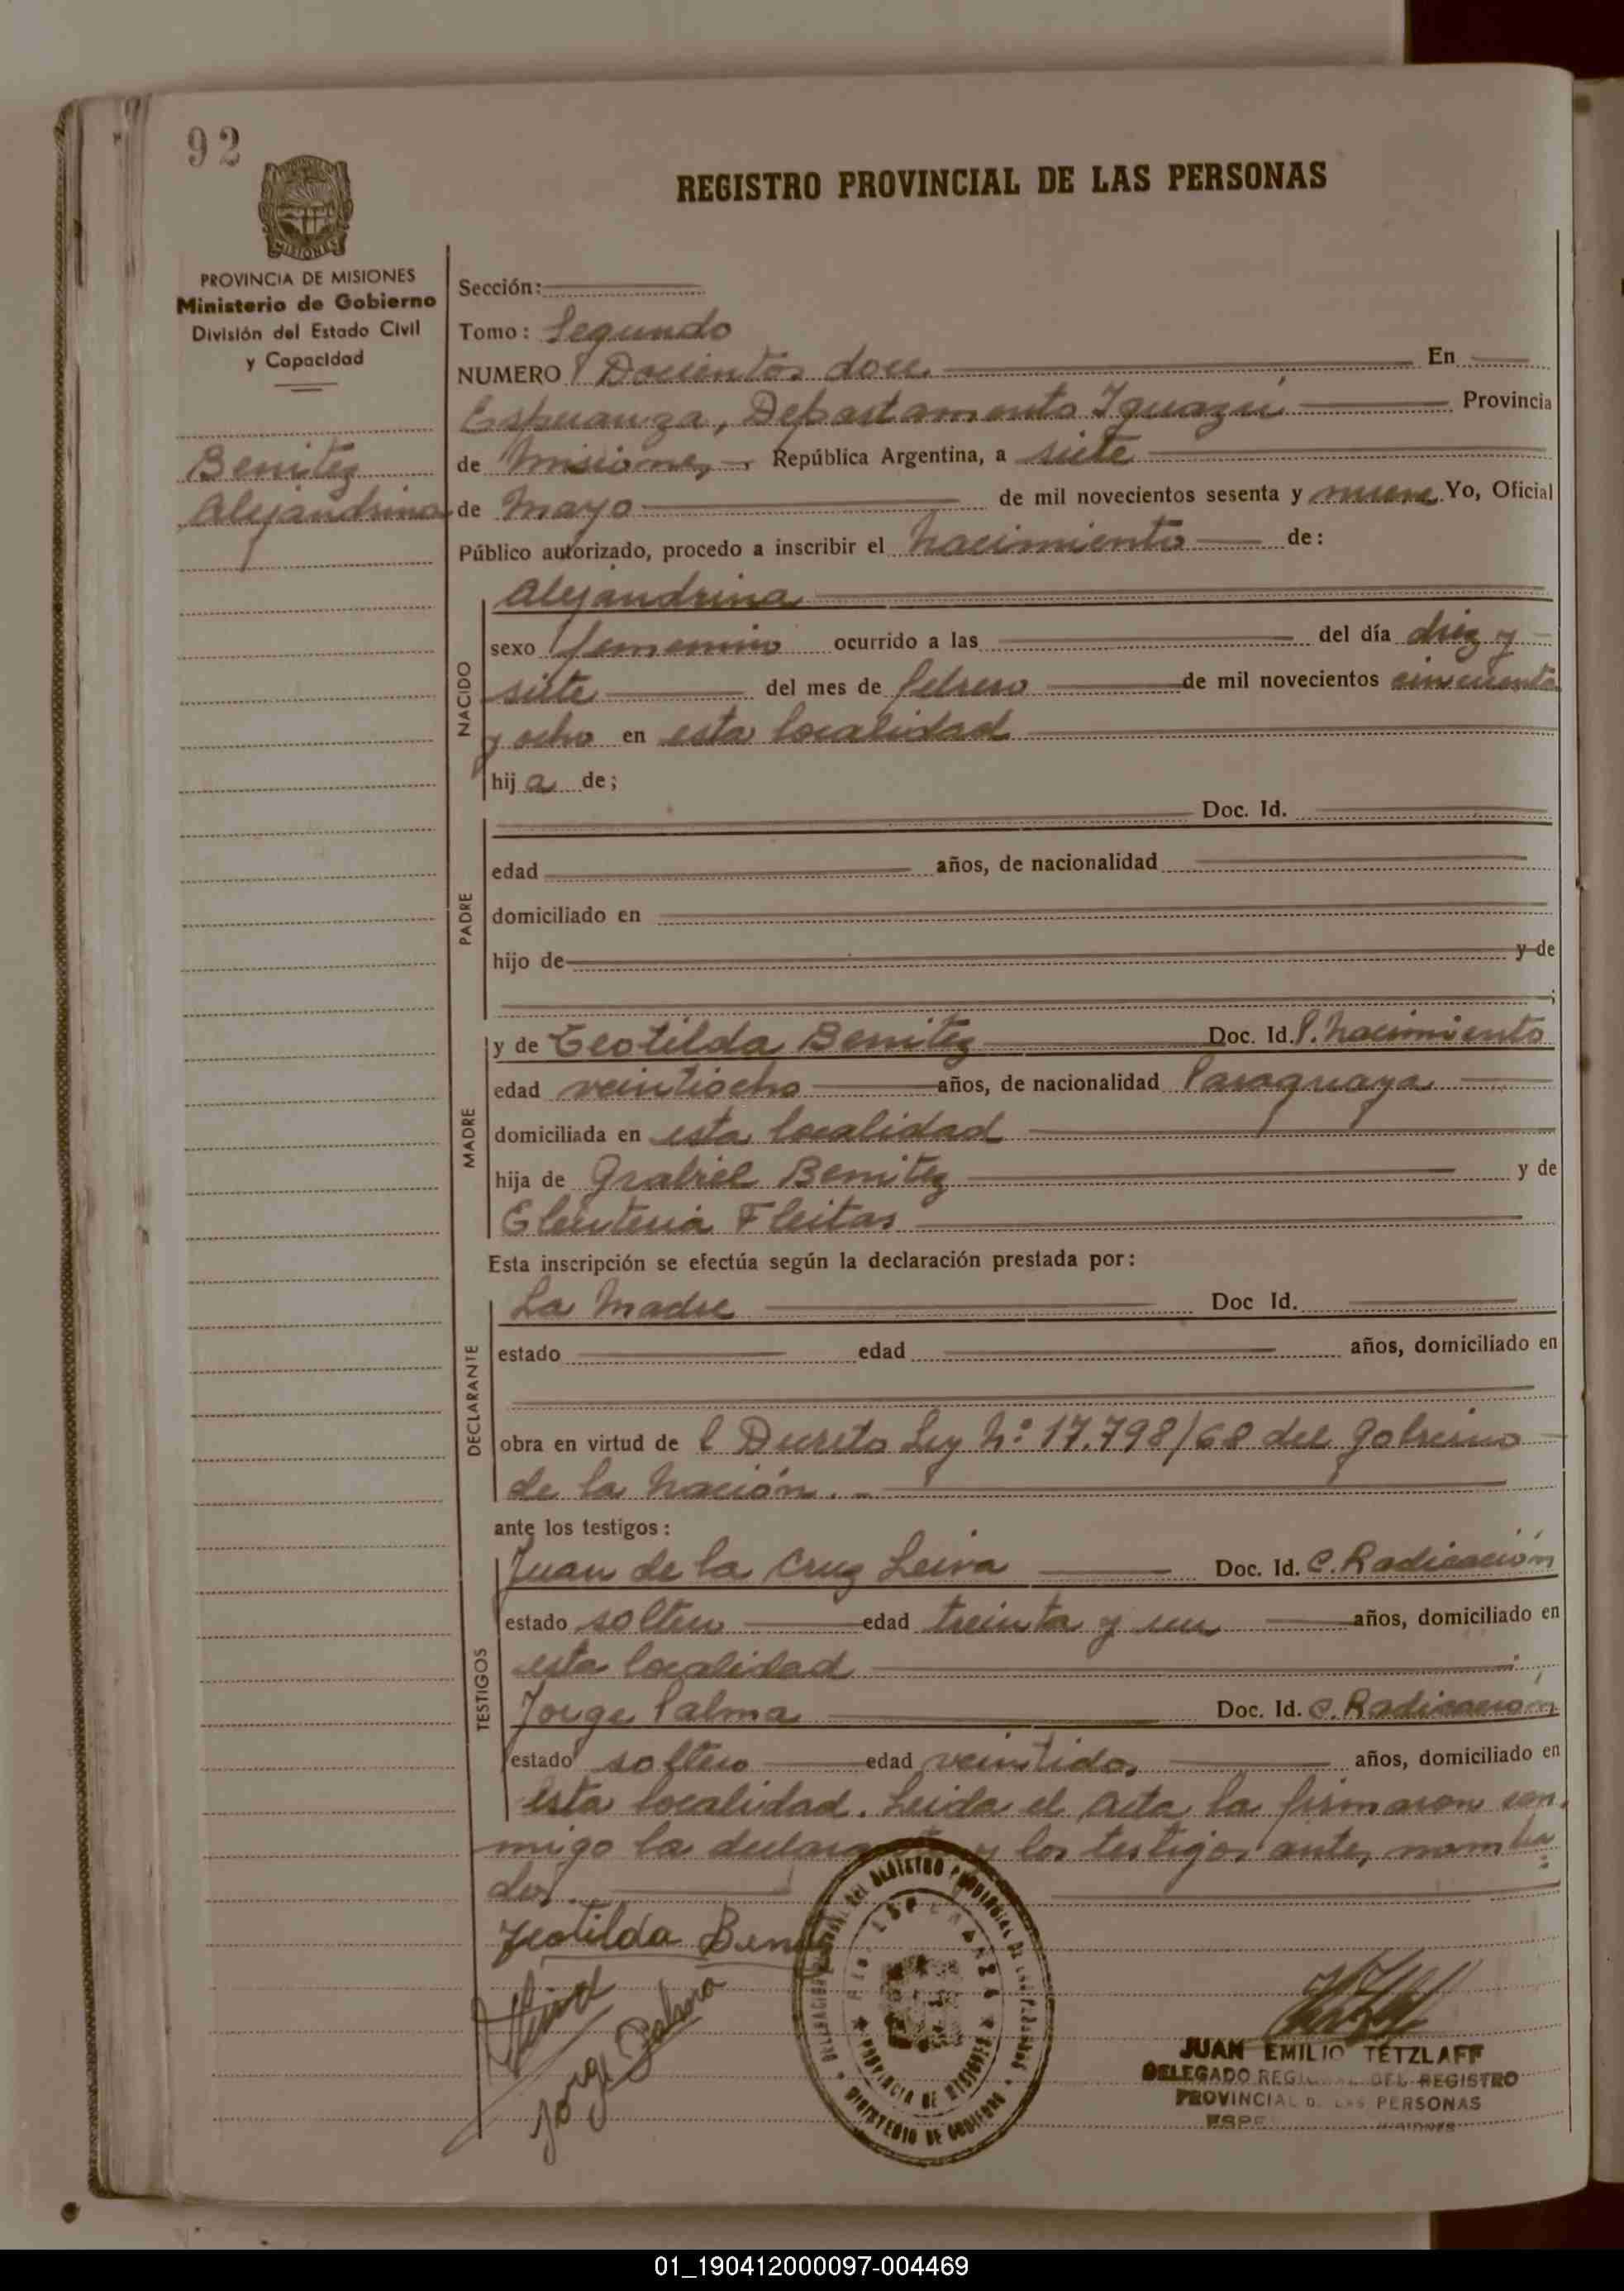 92
REGISTRO PROVINCIAL DE LAS PERSONAS
MISIONES
PROVINCIA DE MISIONES
Ministerio de Gobierno
División del Estado Civil
y Capacidad
Benitez
Alejandrina
Sección:
Tomo: Segundo
NUMERO Docientos doce En
Esperanza, Departamento Iguazú Provincia
de Misiones República Argentina, a siete
de Mayo de mil novecientos sesenta y nueve Yo, Oficial
Público autorizado, procedo a inscribir el Nacimiento de:
NACIDO
Alejandrina
sexo femenino ocurrido a las del día diez y
siete del mes de febrero de mil novecientos cincuenta
y ocho en esta localidad
hij a de;
PADRE
Doc. Id.
edad años, de nacionalidad
domiciliado en
hijo de y de
;
MADRE
y de Teotilda Benitez Doc. Id. P. Nacimiento
edad veintiocho años, de nacionalidad Paraguaya
domiciliada en esta localidad
hija de Grabiel Benitez y de
Eleuteria Fleitas
Esta inscripción se efectúa según la declaración prestada por:
DECLARANTE
La Madre Doc Id.
estado edad años, domiciliado en
obra en virtud de l Decreto Ley Nº 17.798/68 del Gobierno
de la Nación.-
ante los testigos:
TESTIGOS
Juan de la Cruz Leiva Doc. Id. C. Radicación
estado soltero edad treinta y un años, domiciliado en
esta localidad ;
Jorge Palma Doc. Id. C. Radicación
estado soltero edad veintidos años, domiciliado en
esta localidad. Leida el Acta la firmaron con
migo la declarante y los testigos antes nombra
dos.
Teotilda Benitez
Jorge Palma
REGISTRO PROVINCIAL DE LAS PERSONAS
ESPERANZA
PROVINCIA DE MISIONES
MINISTERIO DE GOBIERNO
JUAN EMILIO TETZLAFF
DELEGADO REGIONAL DEL REGISTRO
PROVINCIAL DE LAS PERSONAS
MISIONES
01_190412000097-004469